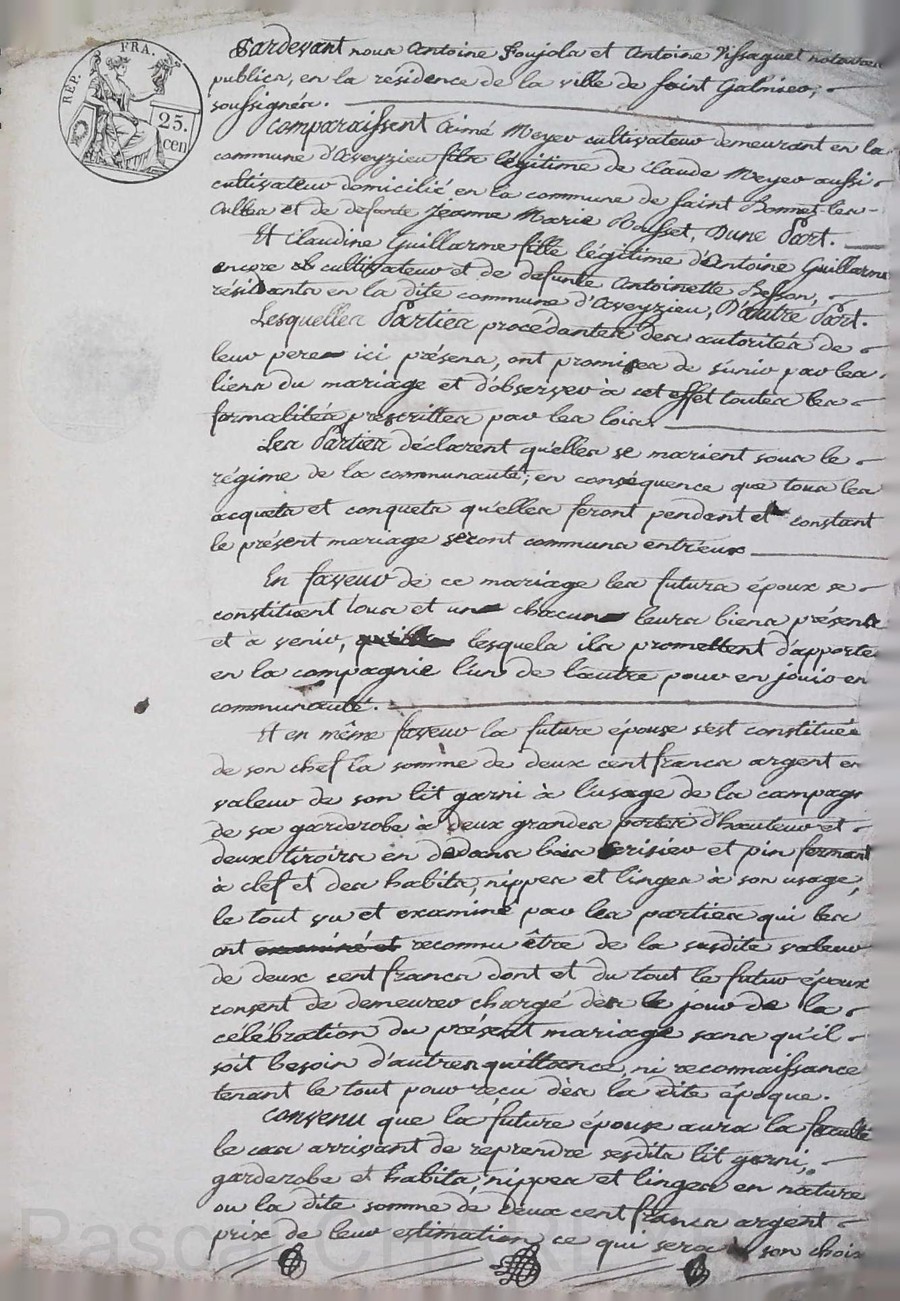 REP. FRA.
25.
cen
Pardevant nous Antoine Poujola et Antoine Vissaguet notaires
publics, en la résidence de la ville de saint Galmier,
soussignés.
Comparaissent Aimé Meyer cultivateur demeurant en la
commune d'Aveyzieu fils légitime de Claude Meyer aussi
cultivateur domicilié en la commune de saint Bonnet-les-
Oulles et de defunte Jeanne Marie Rousset, D'une Part.
Et Claudine Guillarme fille légitime d'Antoine Guillarme
encore cultivateur et de defunte Antoinette Besson,
résidants en la dite commune d'Aveyzieu, D'autre Part.
Lesquelles Parties procédantes des autorités de
leur pere ici présens, ont promises de s'unir par les
liens du mariage et d'observer à cet effet toutes les
formalités prescrittes par les loix.
Les Parties déclarent qu'elles se marient sous le
régime de la communauté; en conséquence que tous les
acquets et conquets qu'elles feront pendent et constant
le présent mariage seront communs entr'eux
En faveur de ce mariage les futurs époux se
constituent tous et un chacun leurs biens présents
et à venir, lesquels ils promettent d'apporter
en la compagnie l'un de l'autre pour en jouir en
communauté.
Et en même faveur la future épouse s'est constituée
de son chef la somme de deux cent francs argent en
valeur de son lit garni à l'usage de la campagne
de sa garderobe à deux grandes portes d'hauteur et
deux tiroirs en dedans bois cerisier et pin fermant
à clef et des habits, nippes et linges à son usage,
le tout vu et examiné par les parties qui les
ont examiné et reconnu être de la susdite valeur
de deux cent francs dont et du tout le futur époux
consent de demeurer chargé dès le jour de la
célébration du présent mariage sans qu'il
soit besoin d'autres quittance, ni reconnaissance
tenant le tout pour reçu dès la dite époque.
Convenu que la future épouse aura la faculté
le cas arrivant de reprendre sesdits lit garni,
garderobe et habits, nippes et linges en nature
ou la dite somme de deux cent francs argent
prix de leur estimation, ce qui sera son choix